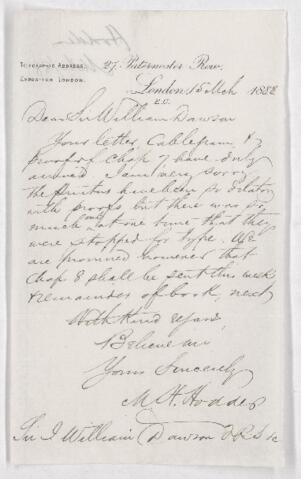 Hodder
27. Paternoster Row.
TELEGRAPHIC ADDRESS:
EXPOSITOR LONDON.
London 15 Mch 1888
E.C.
Dear Sir William Dawson
Your letter, Cablegram, &
proof of chap 7 have duly
arrived I am very sorry
the printers have been so dilatory
with proofs but there was so
much long at one time that they
were stopped for type. We
are promised however that
chap 8 shall be sent this week
& remainder of book next
With kind regards
Believe me
Yours Sincerely
M. H. Hodder
Sir J William Dawson F.R.S &c